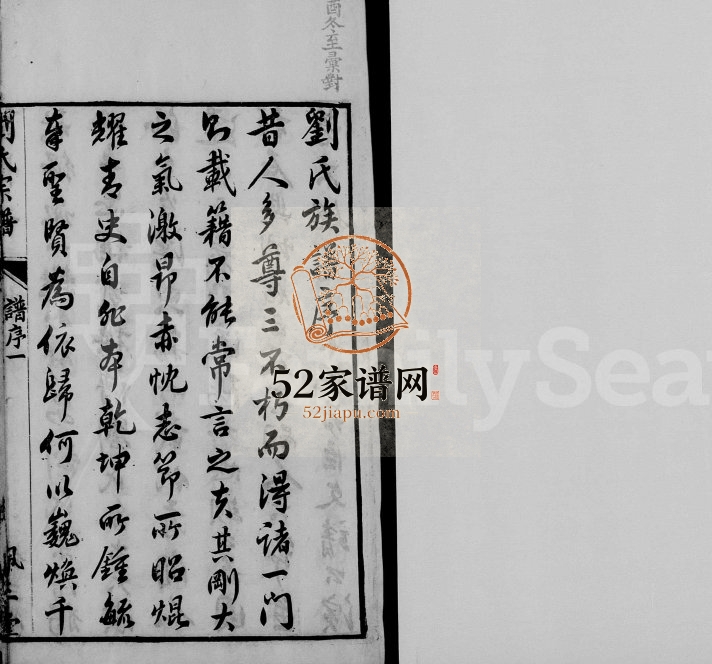 酉冬至彙對
劉氏族譜序
昔人多尊三不朽而得諸一門
則載籍不能常言之矣其剛大
之氣激昂赤忱志節所昭焜
耀青史自非本乾坤所鍾毓
奉聖賢為依歸何以巍煥千
劉氏宗譜
譜序一
52家谱网
52jiapu.com
FamilySear